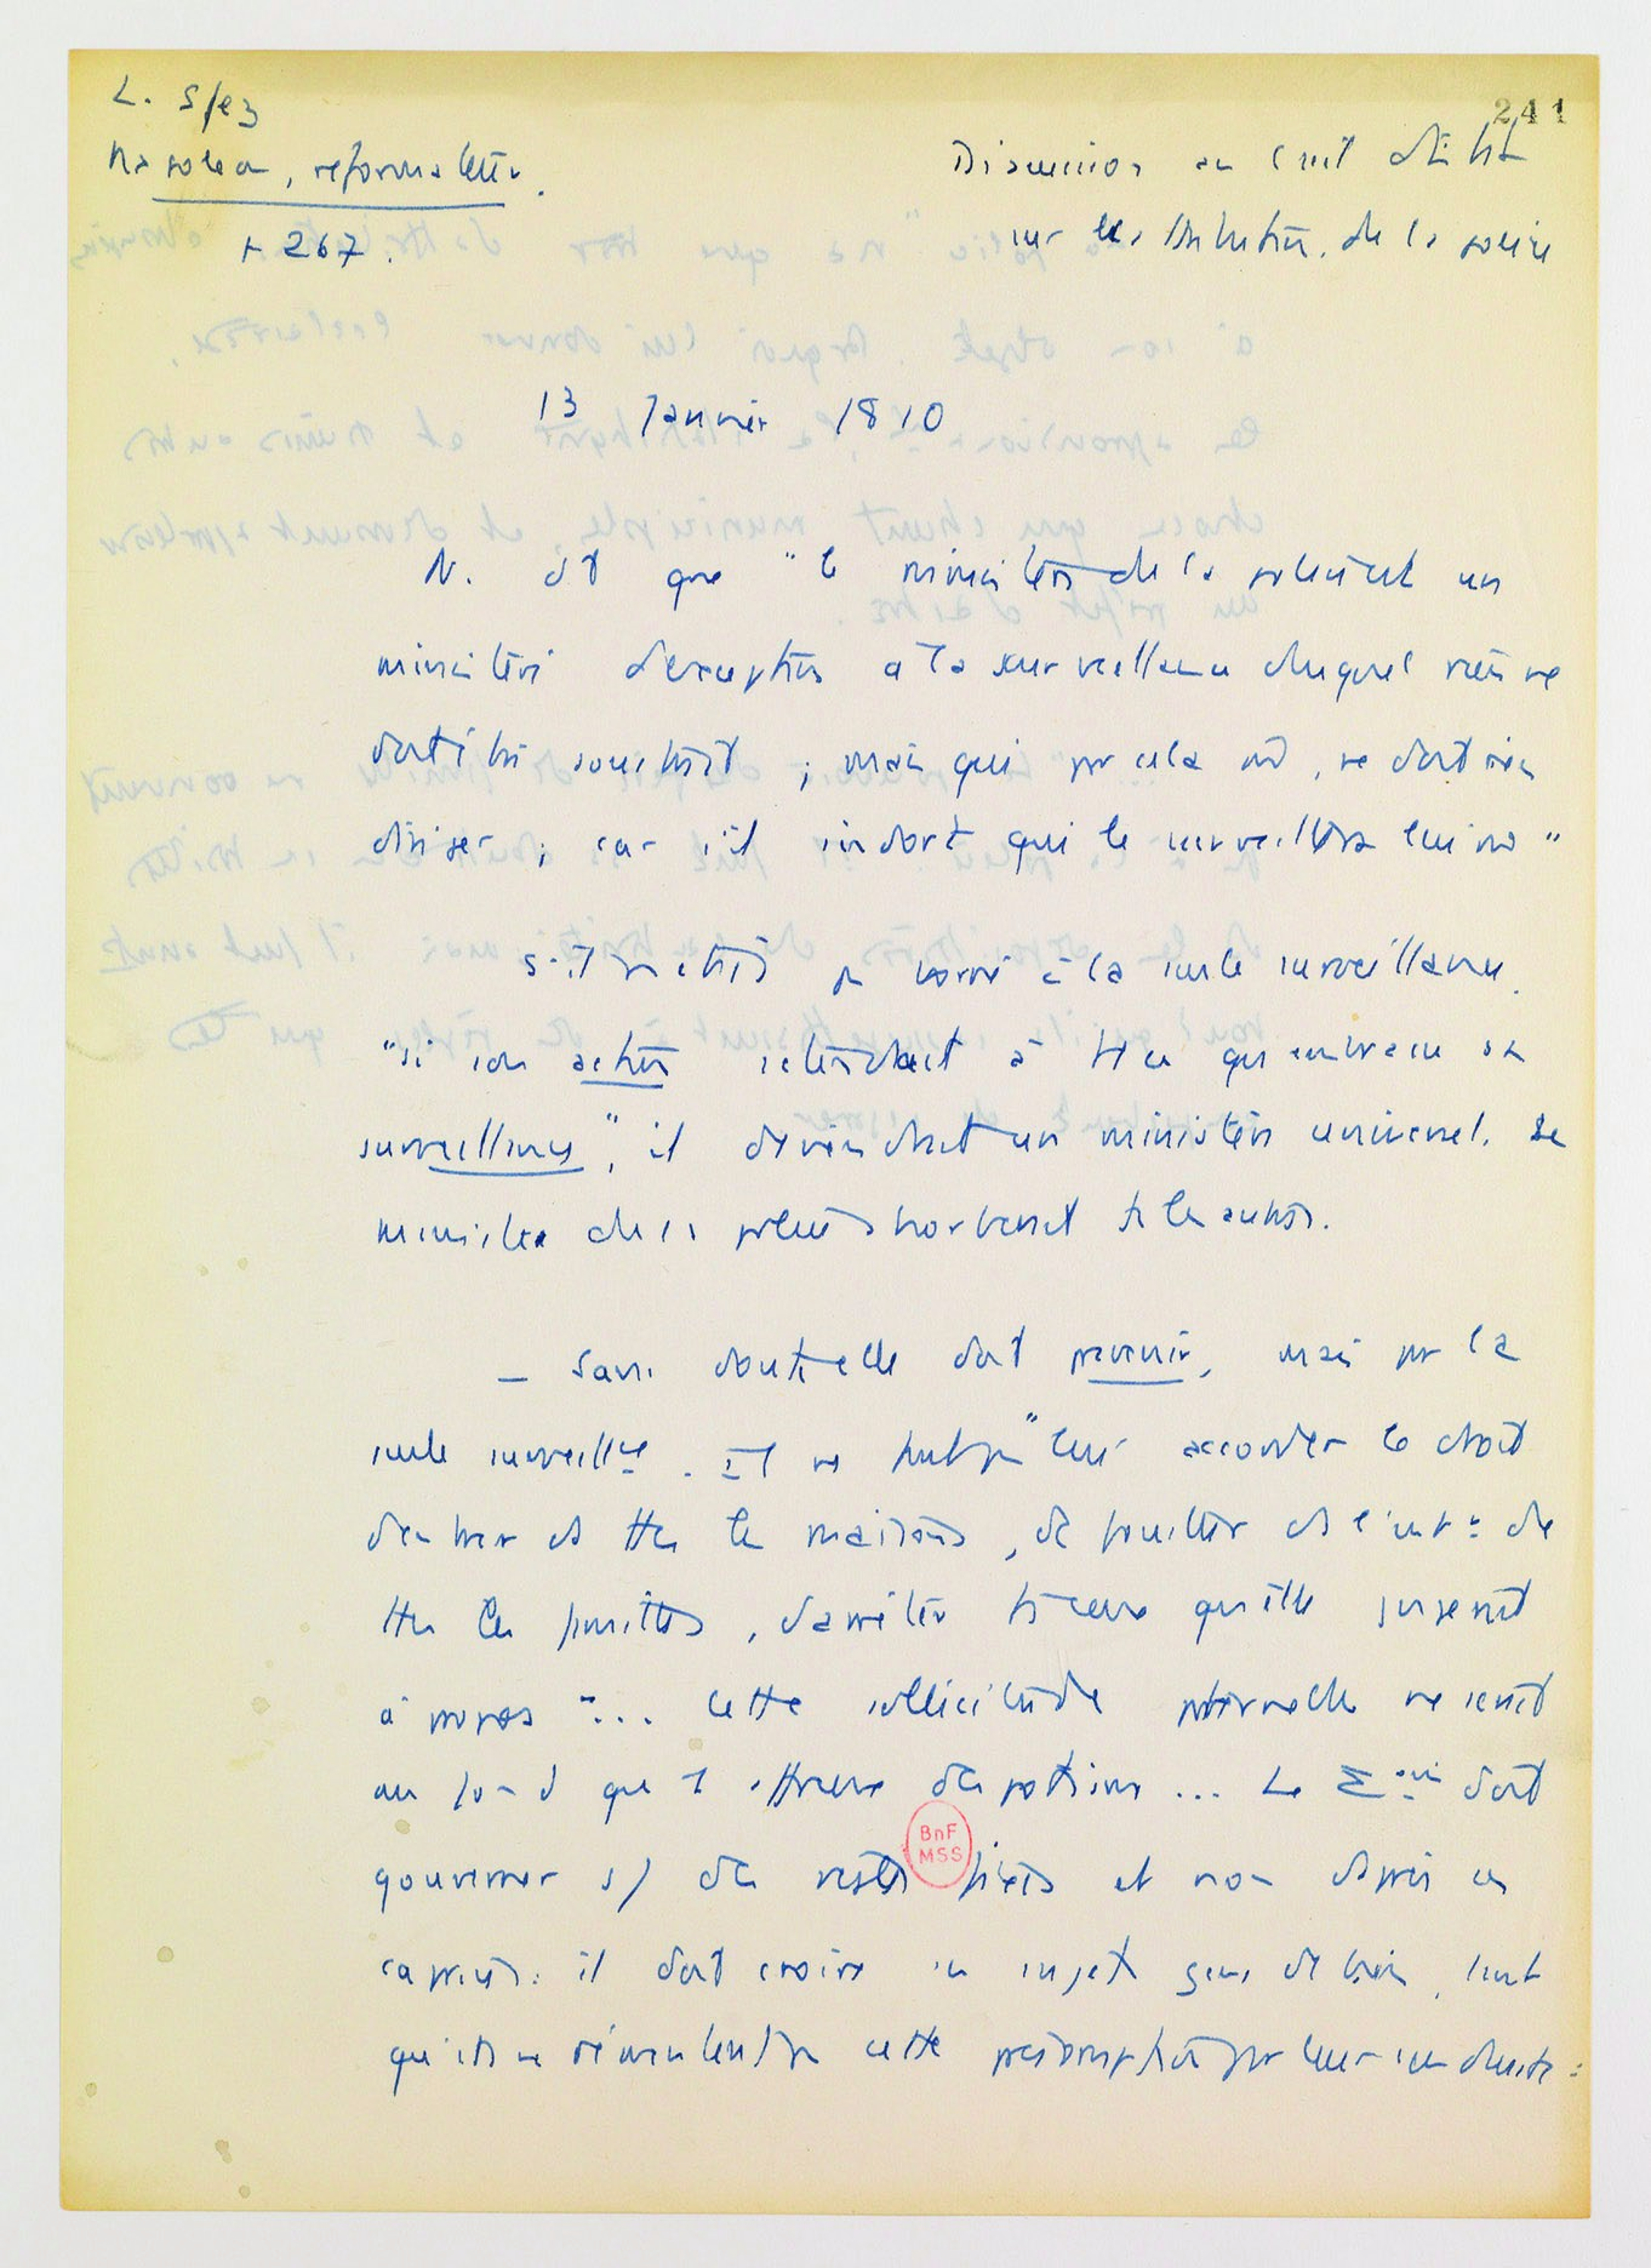 L. Sfez
Napoléon, reformateur.
+ 267.
241
Discussion au Conseil d'Etat
sur les attributions de la police
13 Janvier 1810
N. dit que "le ministère de la police est un
ministère d'exception à la surveillance duquel rien ne
doit être soustrait ; mais qui par cela même, ne doit rien
diriger ; car s'il qui le surveillera lui même"
à la seule surveillance.
"si son action s'étendait à tt ce qu'embrasse sa
surveillance", il deviendrait un ministère universel. Le
ministère de la police absorberait ts les autres.
— Sans doute elle doit prévenir, mais par la
seule surveillce. Il ne faut pas "leur accorder le droit
d'entrer ds ttes les maisons, de fouiller ds l'intr de
ttes les familles, d'arrêter ts ceux qu'elle jugerait
à propos"... Cette sollicitude paternelle ne serait
au fond que l'affreux despotisme ... Le Souvain doit
gouverner d'après des règles fixes et non d'après ses
caprices : il doit croire ses sujets gens de bien, tant
qu'ils ne démentent pas cette présomption par leur conduite :
BnF
MSS